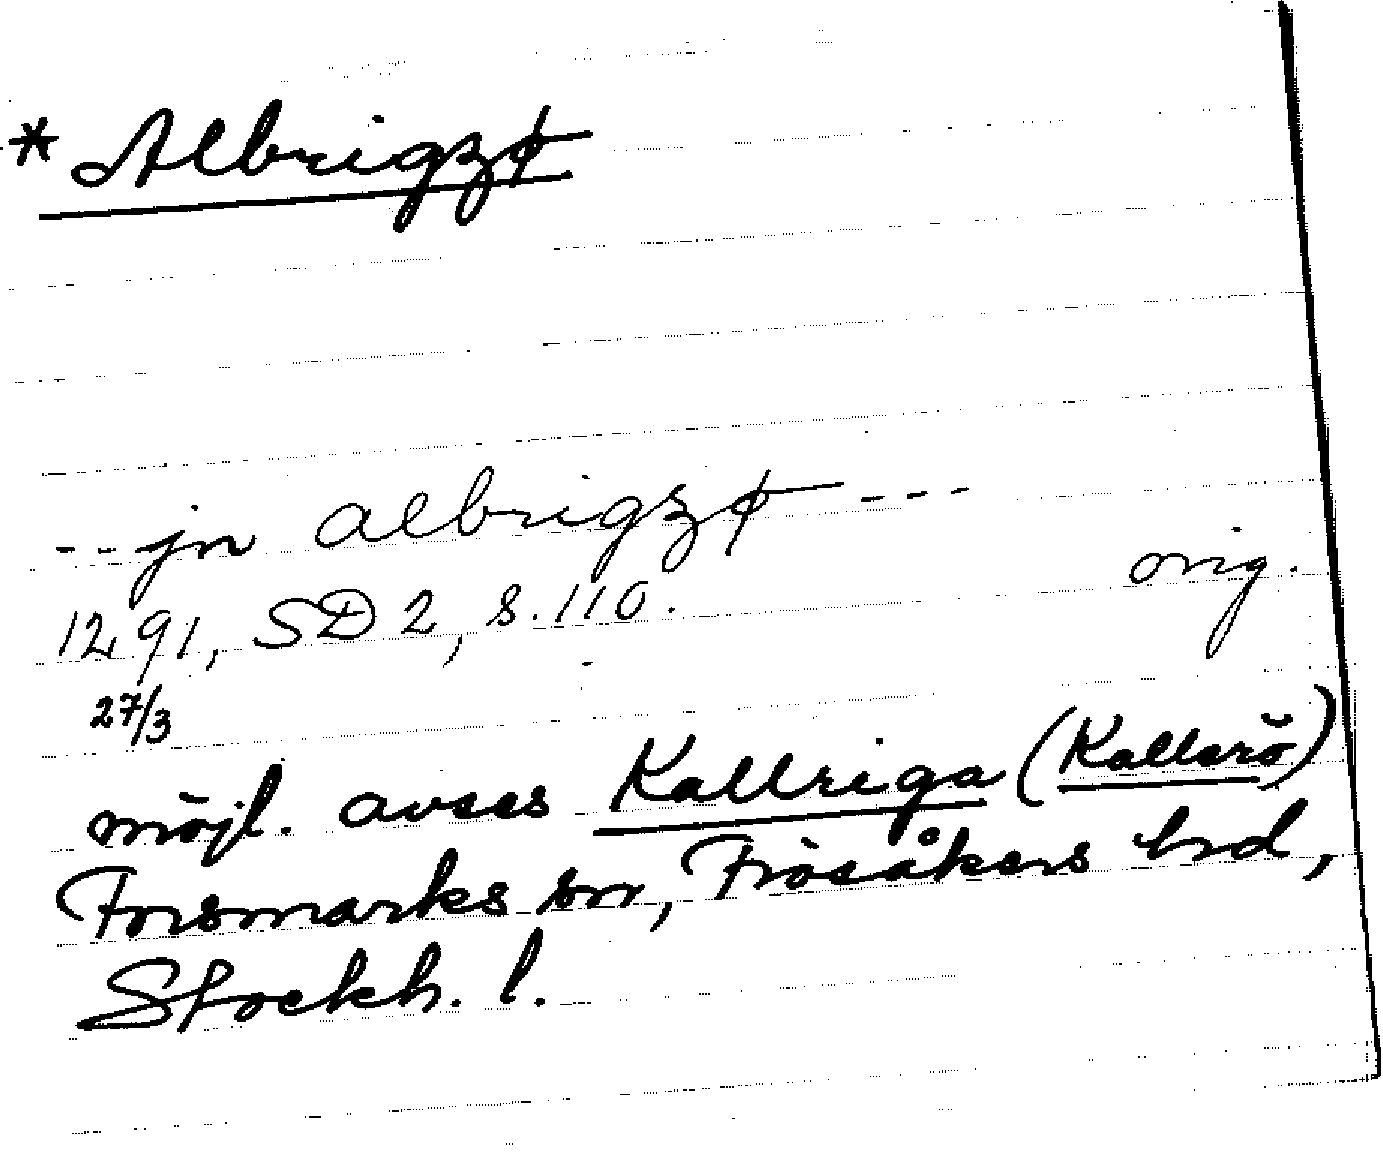 * Albrigzø
-- jn albrigzø ---
orig.
1291, SD 2, s. 110.
27/3
möjl. avses Kallriga (Kallerö)
Forsmarks sn, Frösåkers hrd,
Stockh. l.